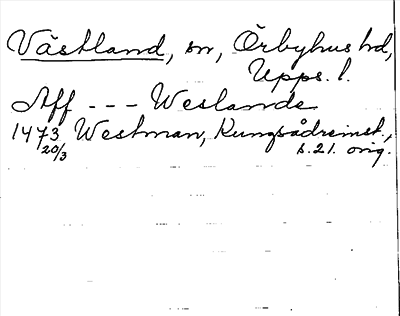 Västland, sn, Örbyhus hd,
Upps. l.
Aff --- Weslande
1473 Westman, Kungsådreinst.,
20/3 s. 21. orig.